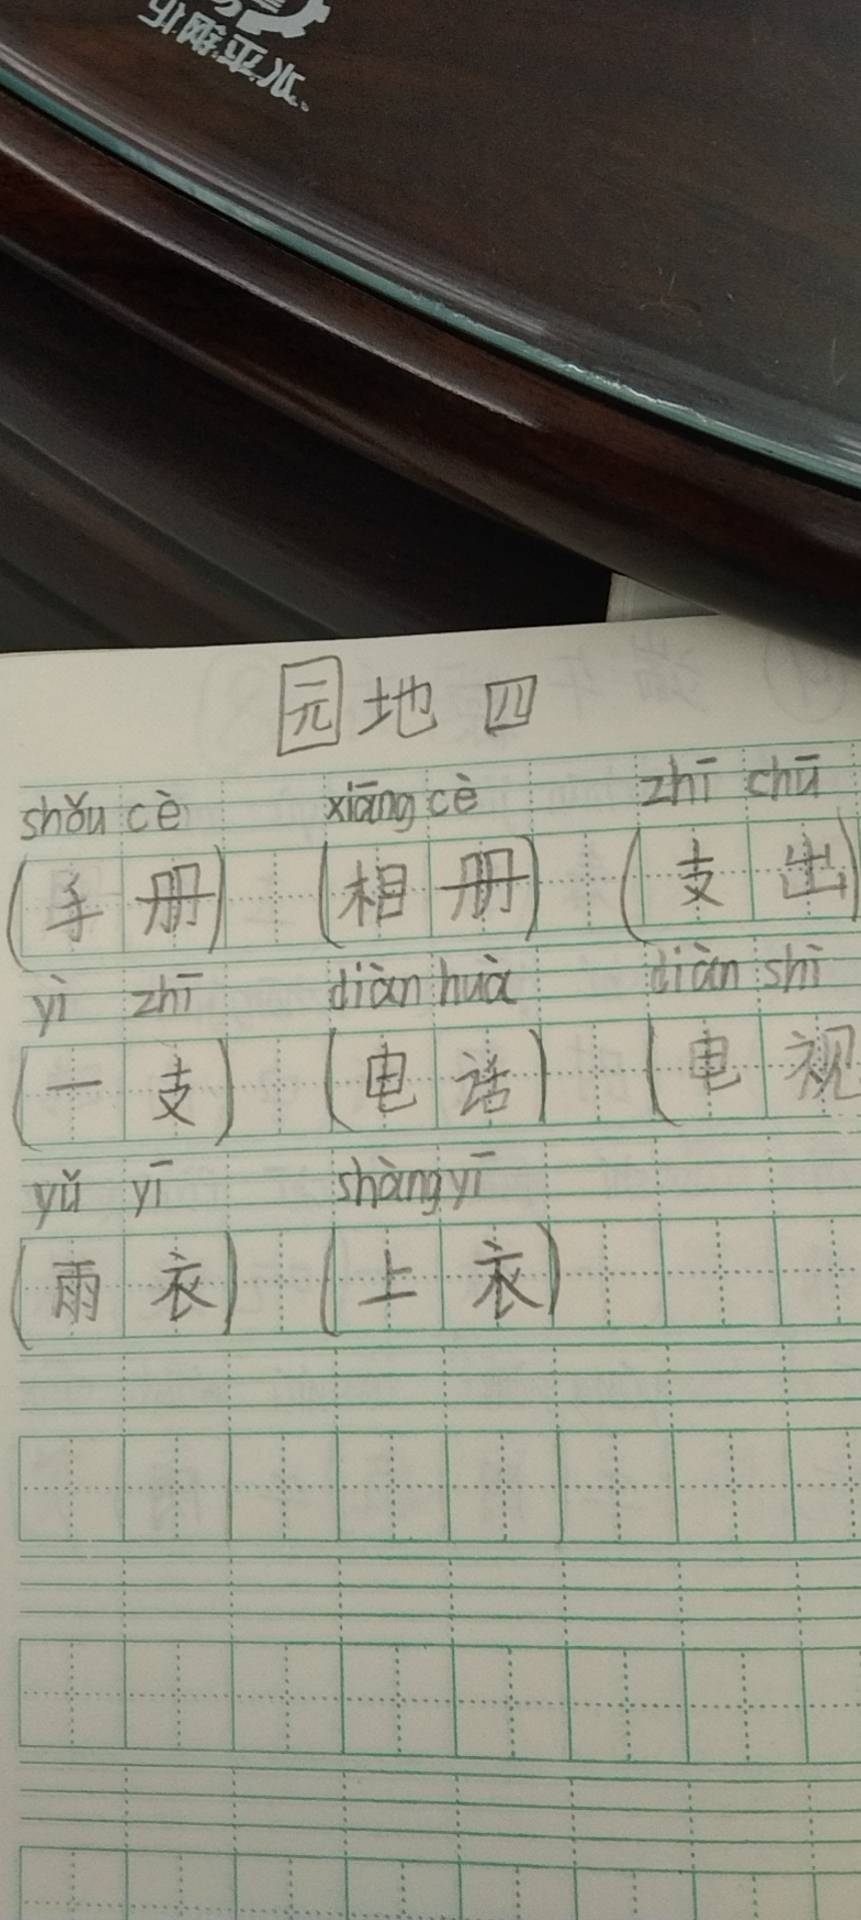 园地四
shǒu cè xiāng cè zhī chū
(手册) (相册) (支出)
yì zhī diàn huà diàn shì
(一支) (电话) (电视)
yǔ yī shàng yī
(雨衣) (上衣)